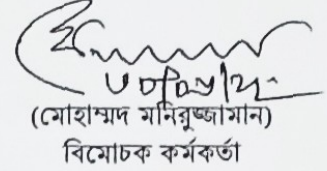 (মোহাম্মদ মনিরুজ্জামান)
বিমোচক কর্মকর্তা